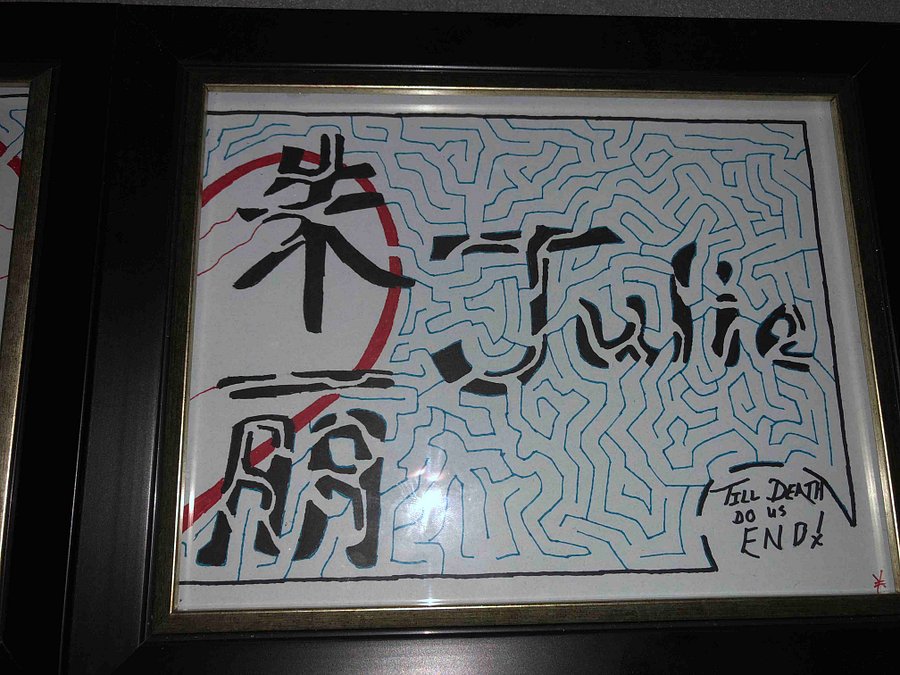 朱丽
Julie
TILL DEATH
DO US
END!